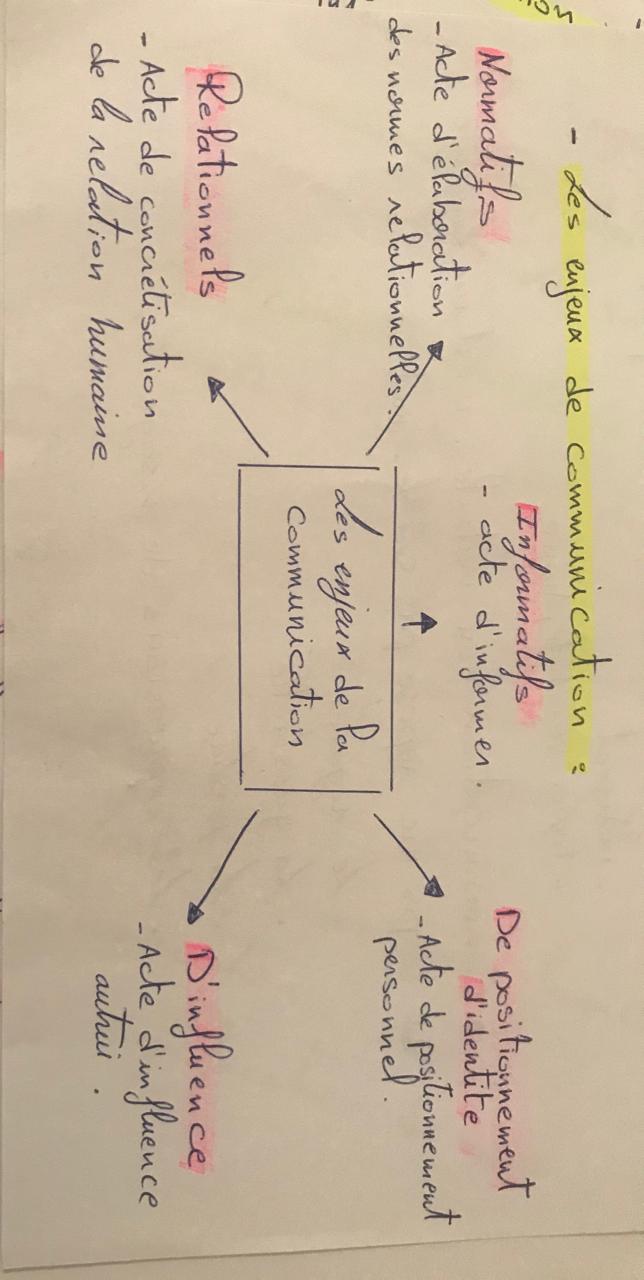 - Les enjeux de communication :
Informatifs
- acte d'informer.
Normatifs
- Acte d'élaboration
des normes relationnelles.
De positionnement
d'identite
- Acte de positionnement
personnel.
Les enjeux de la
communication
Relationnels
- Acte de concrétisation
de la relation humaine
D'influence
- Acte d'influence
autrui.